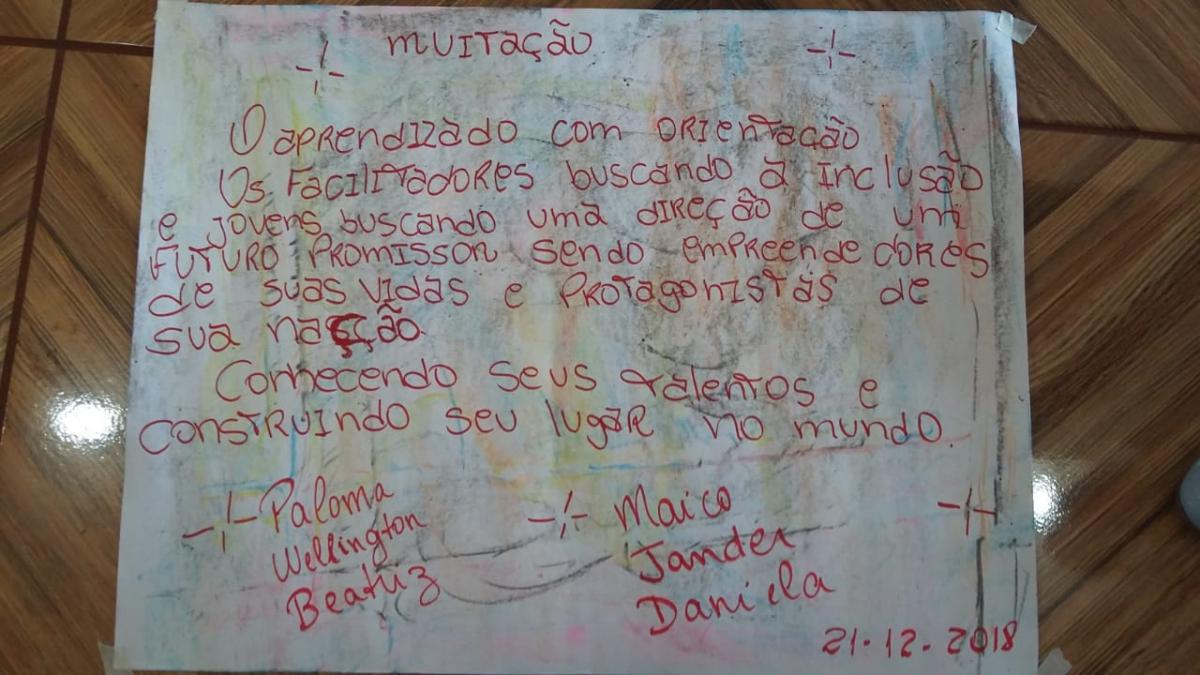 MUITAÇÃO
O aprendizado com orientação
Os Facilitadores buscando a inclusão
e jovens buscando uma direção de um
futuro promissor sendo empreendedores
de suas vidas e protagonistas de
sua nação.
Conhecendo seus talentos e
construindo seu lugar no mundo.
Paloma
Wellington
Beatriz
Maico
Jander
Daniela
21-12-2018